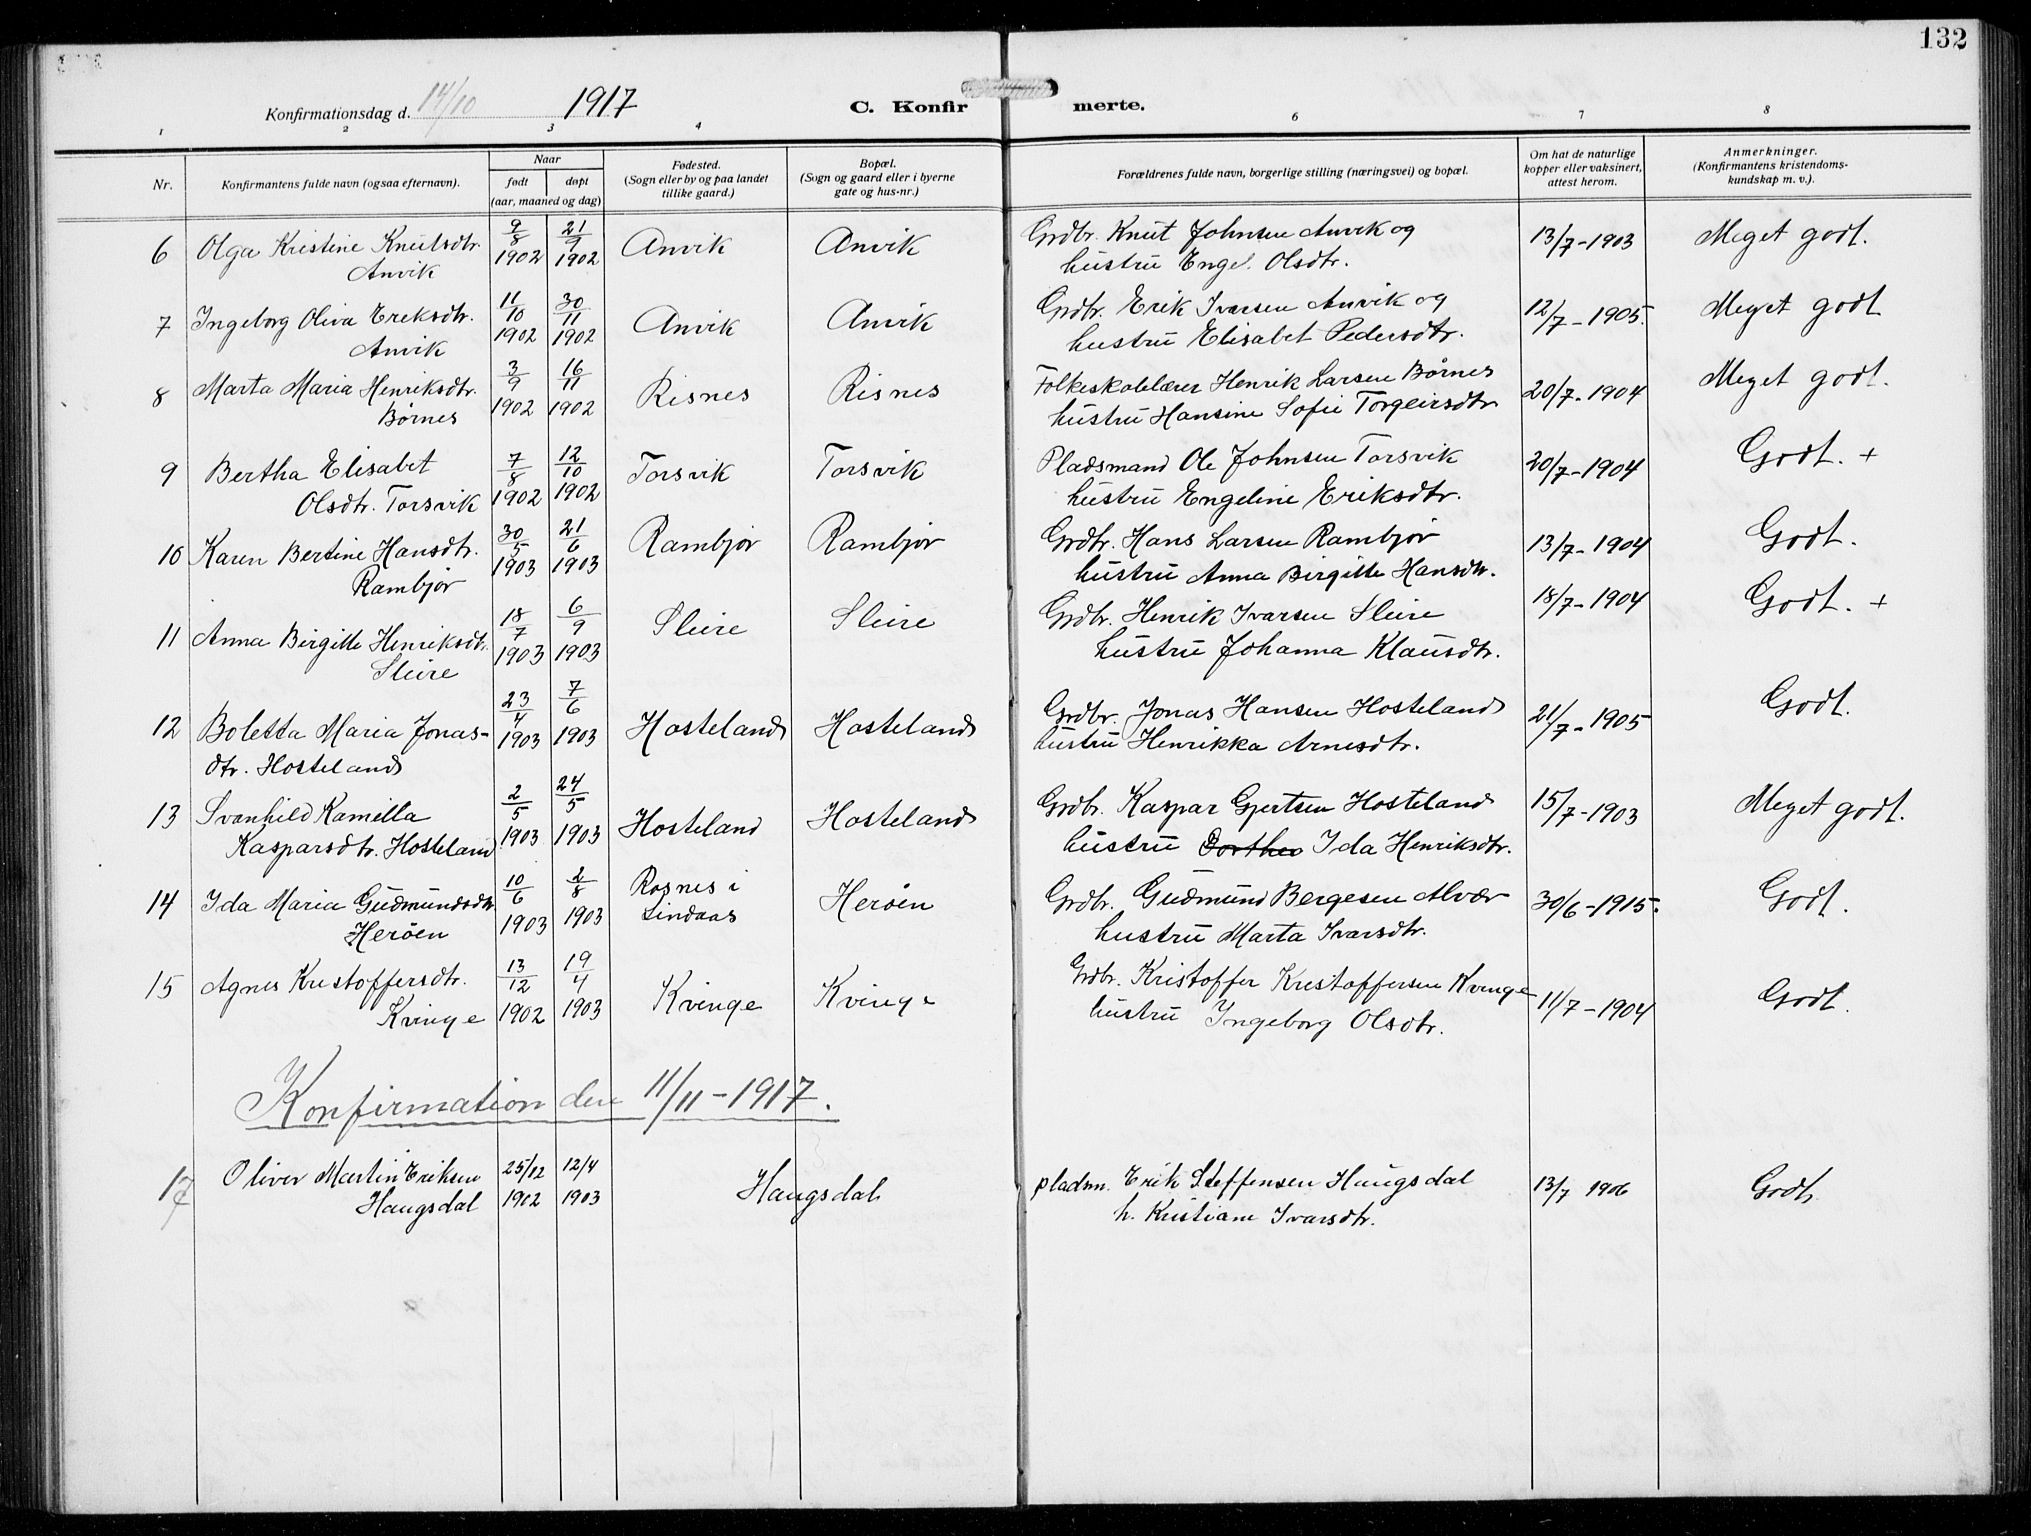 132
Konfirmationsdag d. 14/10 1917
C. Konfirmerte.
1 2 3 4 6 7 8
Nr.
Konfirmantens fulde navn (ogsaa efternavn).
Naar
født døpt
(aar, maaned og dag)
Fødested.
(Sogn eller by og paa landet
tillike gaard.)
Bopæl.
(Sogn og gaard eller i byerne
gate og hus-nr.)
Forældrenes fulde navn, borgerlige stilling (næringsvei) og bopæl.
Om hat de naturlige
kopper eller vaksinert,
attest herom.
Anmerkninger.
(Konfirmantens kristendoms-
kundskap m. v.).
6 Olga Kristine Knutsdtr. 9/8 1902 21/9 1902 Anvik Anvik Grdbr. Knut Johnsen Anvik og 13/7-1903 Meget godt.
Anvik hustru Engel. Olsdtr.
7 Ingeborg Oliva Ereksdtr. 11/10 1902 30/11 1902 Anvik Anvik Grdbr. Erik Ivarsen Anvik og 12/7-1905. Meget godt
Anvik hustru Elisabet Pedersdtr.
8 Marta Maria Henriksdtr. 3/9 1902 16/11 1902 Risnes Risnes Folkeskolelærer Henrik Larsen Børnes 20/7-1904 Meget godt.
Børnes hustru Hansine Sofie Torgeirsdtr
9 Bertha Elisabet 7/8 1902 12/10 1902 Torsvik Torsvik Pladsmand Ole Johnsen Torsvik 20/7-1904 Godt. +
Olsdtr. Torsvik hustru Engeline Eriksdtr.
10 Karen Bertine Hansdtr. 30/5 1903 21/6 1903 Rambjør Rambjør Grdbr. Hans Larsen Rambjør 13/7-1904 Godt.
Rambjør hustru Anna Birgitte Hansdtr.
11 Anna Birgitte Henriksdtr. 18/7 1903 6/9 1903 Sleire Sleire Grdbr. Henrik Ivarsen Sleire 18/7-1904 Godt. +
Sleire hustru Johanna Klausdtr.
12 Boletta Maria Jonas- 23/4 1903 7/6 1903 Hosteland Hosteland Grdbr. Jonas Hansen Hosteland 21/7-1905 Godt.
dtr. Hosteland hustru Henrikka Arnesdtr.
13 Svanhild Kamilla 2/5 1903 24/5 1903 Hosteland Hosteland Grdbr. Kaspar Gjertsen Hosteland 15/7-1903 Meget godt.
Kasparsdtr. Hosteland hustru Dorthea Ida Henriksdtr.
14 Ida Maria Gudmundsdtr 10/6 1903 2/8 1903 Rosnes i Herøen Grdbr. Gudmund Bergesen Alvær 30/6-1915. Godt.
Herøen Lindaas hustru Marta Ivarsdtr.
15 Agnes Kristoffersdtr. 13/12 1902 19/4 1903 Kvinge Kvinge Grdbr. Kristoffer Kristoffersen Kvinge 11/7-1904 Godt.
Kvinge hustru Ingeborg Olsdtr.
Konfirmation den 11/11-1917.
17 Oliver Martin Eriksen 25/12 1902 12/4 1903 Haugsdal pladsm. Erik Steffensen Haugsdal 13/7 1906 Godt.
Haugsdal h. Kristiane Ivarsdtr.